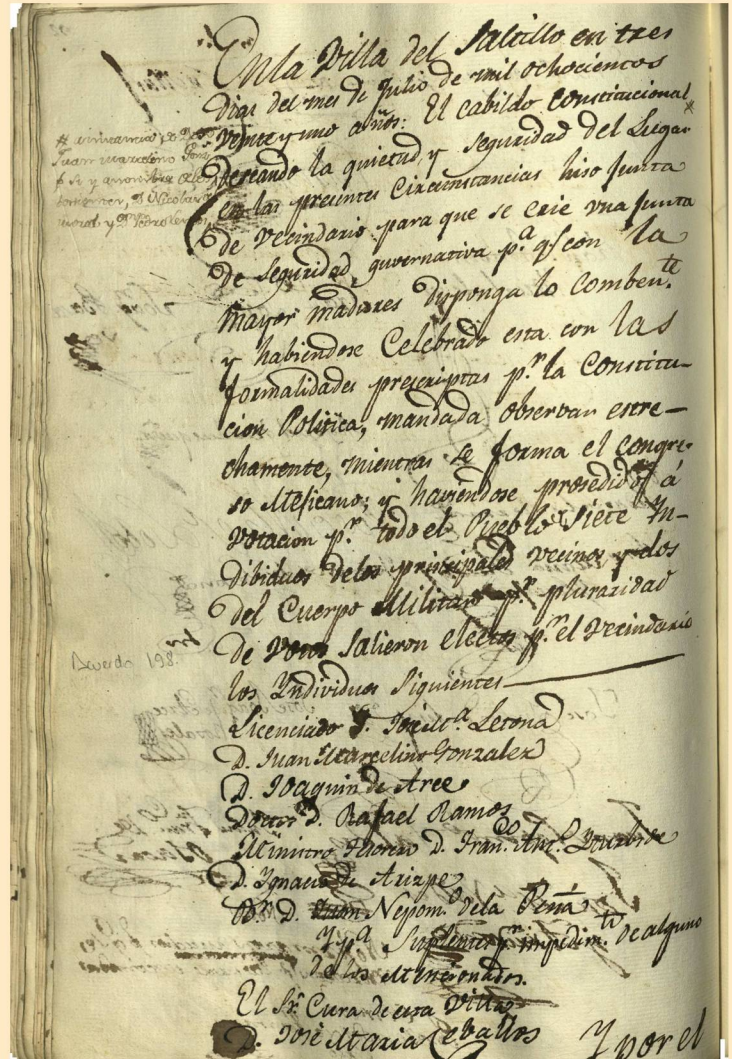 En la Villa del Saltillo en tres
dias del mes de Julio de mil ochocientos
veinte y uno años: El cabildo constitucional
deseando la quietud y seguridad del Lugar
en las presentes circunstancias hiso junta
de vecindario para que se crie vna junta
de seguridad guvernativa p.ª q.e con la
mayor madures disponga lo comben.te
y habiendose Celebrado esta con las
formalidades prescriptas p.r la Constitu-
cion Politica, mandada observar estre-
chamente, mientras se forma el congre-
so Mexicano; y haviendose prosedido á
votacion p.r todo el Pueblo siete In-
dibiduos delos principales vecinos y dos
del Cuerpo Militar p.r pluraridad
de votos salieron electos p.r el vecindario
los Individuos siguientes
Licenciado D. José M.ª Letona
D. Juan Marcelino Gonzalez
D. Joaquin de Arce
Doctor D. Rafael Ramos
Ministro Tesorero D. Fran.co Ant.o
D. Ignacio de Arizpe
Br. D. Juan Nepom.o dela Peña
Y p.ª Suplentes p.r impedim.to de alguno
de los Mencionados.
El Sr. Cura de esta Villa
D. José Maria Ceballos Y por el
Juan Marcelino
D. Nicolas
Acuerdo 198.